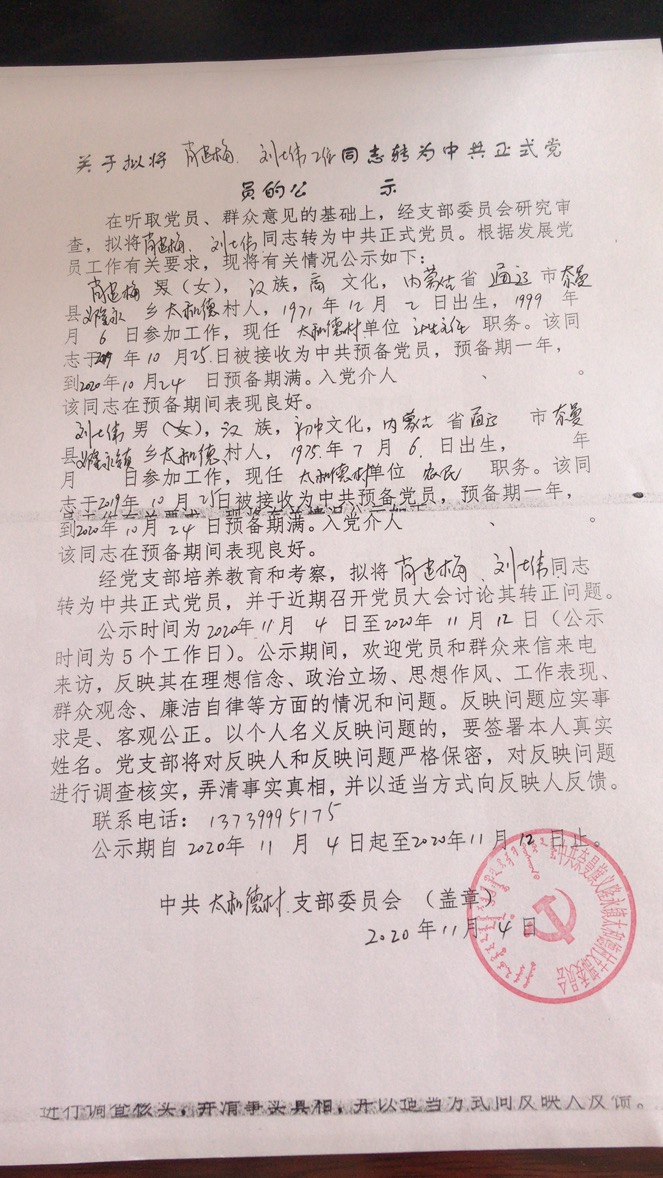 关于拟将 肖建梅、刘士伟二位同志转为中共正式党
员的公 示
在听取党员、群众意见的基础上，经支部委员会研究审
查，拟将肖建梅、刘士伟同志转为中共正式党员。根据发展党
员工作有关要求，现将有关情况公示如下：
肖建梅 男（女），汉 族，高 文化，内蒙古省 通辽 市奈曼
县义隆永 乡太和德村人，1971 年 12 月 2 日出生，1999 年
月 6 日参加工作，现任 太和德村单位 计生主任 职务。该同
志于2019 年 10 月25日被接收为中共预备党员，预备期一年，
到2020年10月24 日预备期满。入党介人 、 。
该同志在预备期间表现良好。
刘士伟 男（女），汉 族，初中文化，内蒙古 省 通辽 市 奈曼
县义隆永镇 乡太和德 村人，1975年 7 月 6 日出生， 年
月 日参加工作，现任 太和德村单位 农民 职务。该同
志于2019年 10 月25日被接收为中共预备党员，预备期一年，
到2020年10月24日预备期满。入党介人 、 。
该同志在预备期间表现良好。
经党支部培养教育和考察，拟将 肖建梅、刘士伟同志
转为中共正式党员，并于近期召开党员大会讨论其转正问题。
公示时间为2020年11月 4 日至2020年 11月 12日（公示
时间为5个工作日）。公示期间，欢迎党员和群众来信来电
来访，反映其在理想信念、政治立场、思想作风、工作表现、
群众观念、廉洁自律等方面的情况和问题。反映问题应实事
求是、客观公正。以个人名义反映问题的，要签署本人真实
姓名。党支部将对反映人和反映问题严格保密，对反映问题
进行调查核实，弄清事实真相，并以适当方式向反映人反馈。
联系电话：13739995175
公示期自 2020年 11 月 4日起至2020年11月 12 日止。
中共 太和德村 支部委员会 （盖章）
2020年11月 4日
进行调查核实，弄清事实真相，并以适当方式向反映人反馈。